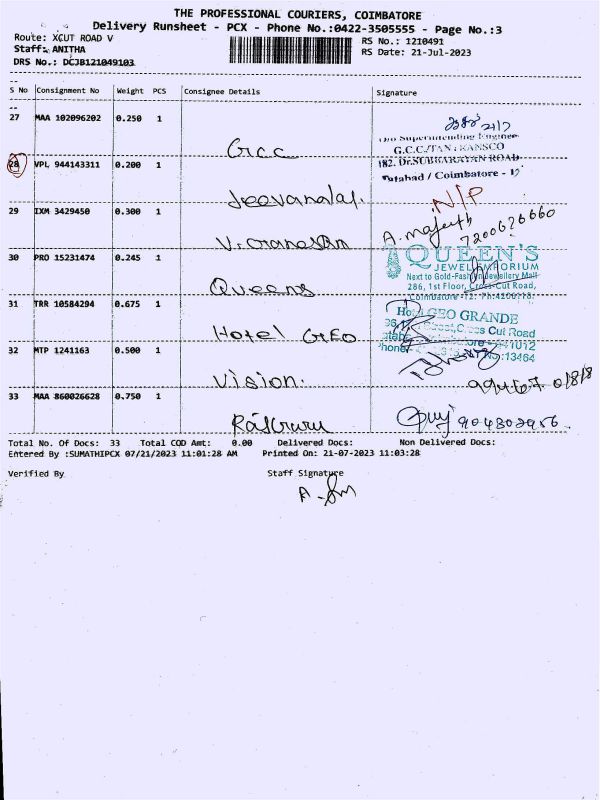 THE PROFESSIONAL COURIERS, COIMBATORE
Delivery Runsheet - PCX - Phone No.:0422-3505555 - Page No.:3
Route: XCUT ROAD V
RS No.: 1210491
Staff: ANITHA
RS Date: 21-Jul-2023
DRS No.: DCJB121049103
S No Consignment No Weight PCS Consignee Details Signature
27 MAA 102096202 0.250 1
Gcc
G.C.C./TANTRANSCO
182, Dr.SUBBARAYAN ROAD
Tatabad / Coimbatore - 12
28 VPL 944143311 0.200 1
N/P
29 IXM 3429450 0.300 1
A. majeeth
7200626660
30 PRO 15231474 0.245 1
Queens
QUEEN'S
JEWELL MORIUM
Next to Gold-Fashion Jewellery Mall
286, 1st Floor, Cross-Cut Road,
Coimbatore -12.
31 TRR 10584294 0.675 1
Hotel GEO
Hotel GEO GRANDE
Cross Cut Road
32 MTP 1241163 0.500 1
Vision.
33 MAA 860026628 0.750 1
Total No. Of Docs: 33 Total COD Amt: 0.00 Delivered Docs: Non Delivered Docs:
Entered By :SUMATHIPCX 07/21/2023 11:01:28 AM Printed On: 21-07-2023 11:03:28
Verified By Staff Signature